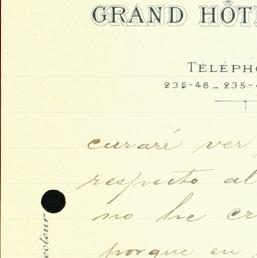 GRAND HÔT
TÉLÉPHO
235-48 _ 235-4
curaré ver
respecto al
no he cr
porque en
ecteur